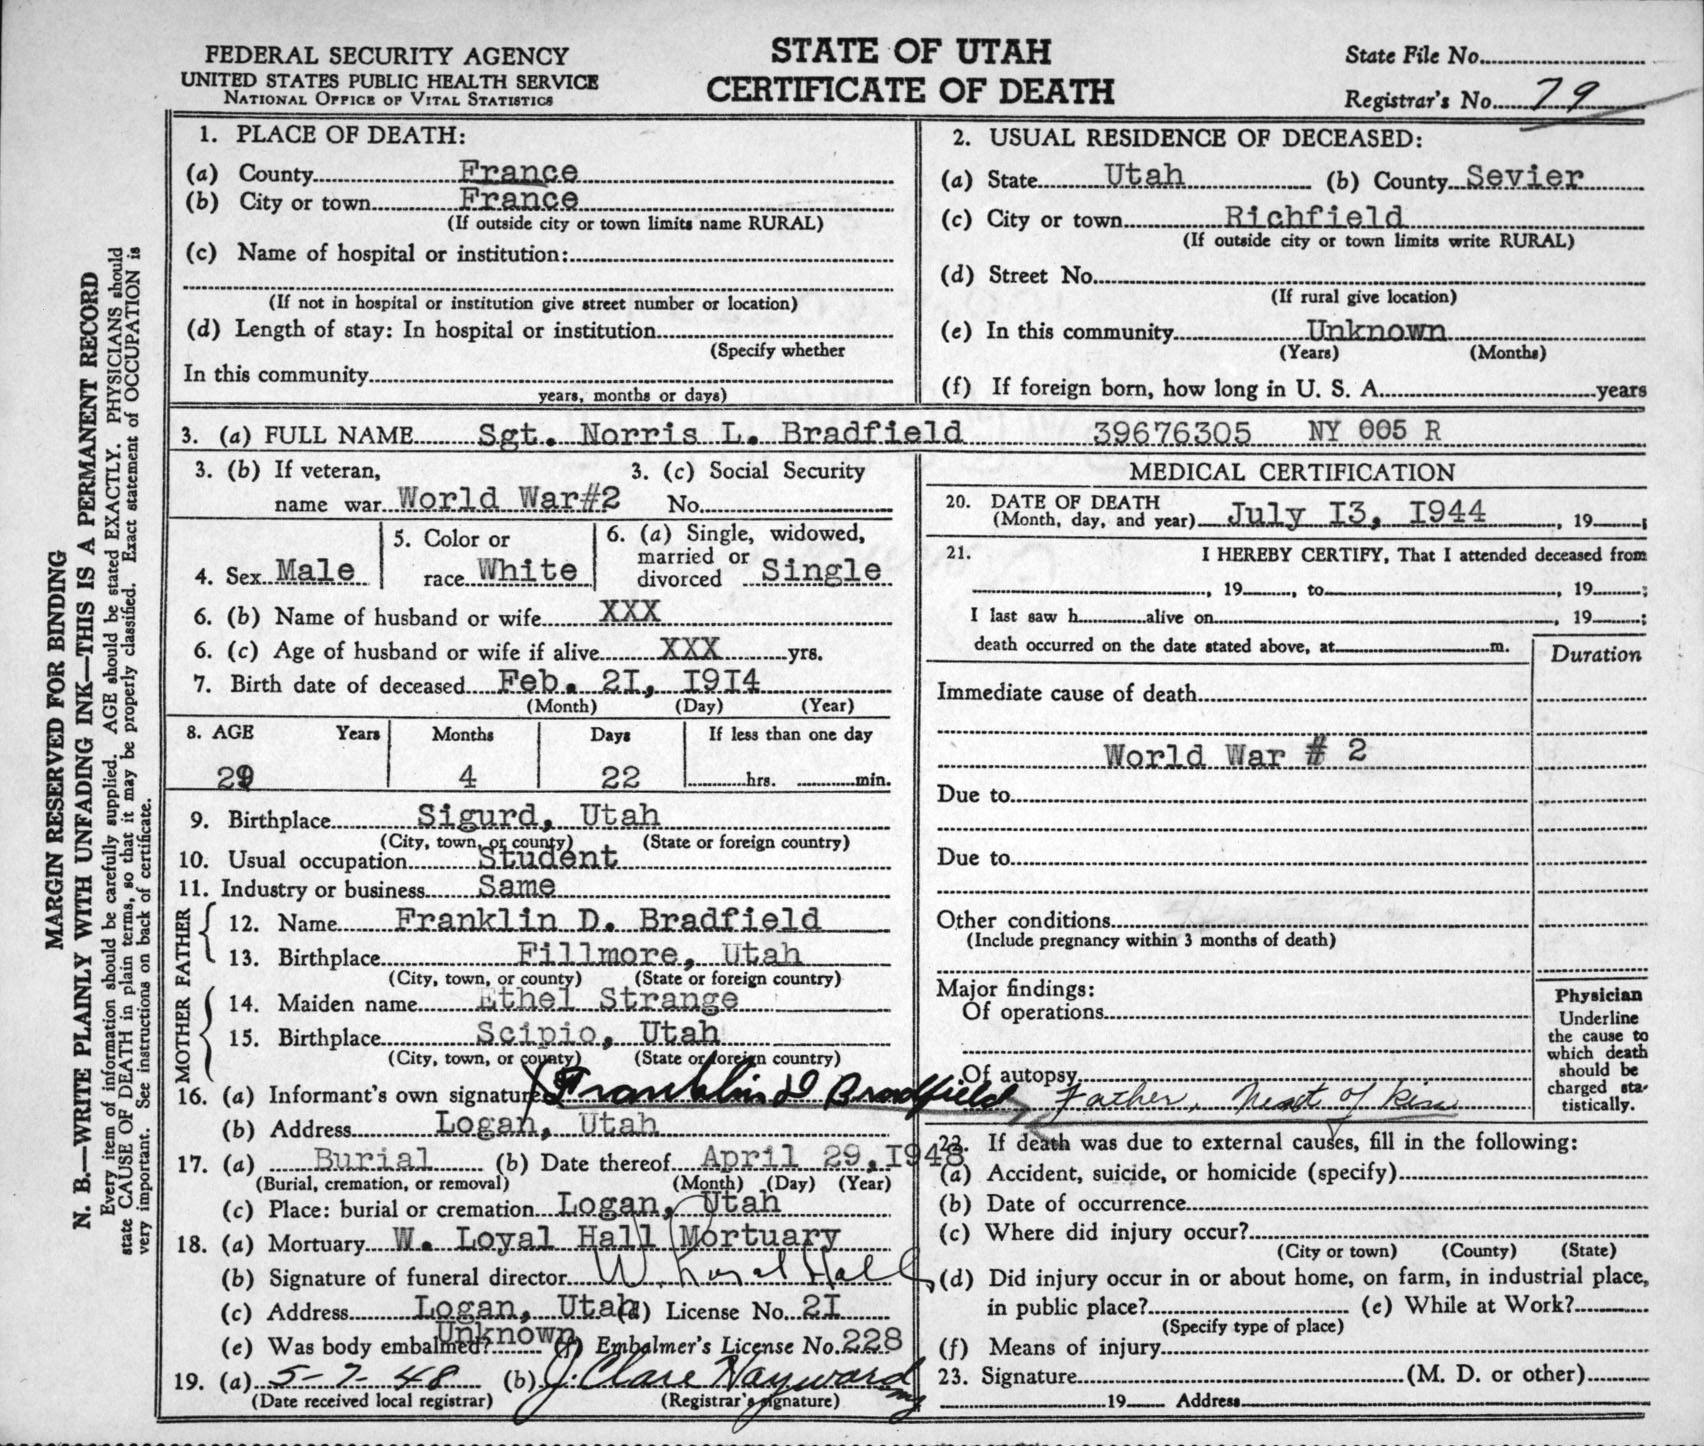 FEDERAL SECURITY AGENCY
UNITED STATES PUBLIC HEALTH SERVICE
NATIONAL OFFICE OF VITAL STATISTICS
STATE OF UTAH
CERTIFICATE OF DEATH
State File No.
Registrar's No. 79
MARGIN RESERVED FOR BINDING
N. B.—WRITE PLAINLY WITH UNFADING INK—THIS IS A PERMANENT RECORD
Every item of information should be carefully supplied. AGE should be stated EXACTLY. PHYSICIANS should
state CAUSE OF DEATH in plain terms, so that it may be properly classified. Exact statement of OCCUPATION is
very important. See instructions on back of certificate.
1. PLACE OF DEATH:
(a) County France
(b) City or town France
(If outside city or town limits name RURAL)
(c) Name of hospital or institution:
(If not in hospital or institution give street number or location)
(d) Length of stay: In hospital or institution
(Specify whether
In this community
years, months or days)
2. USUAL RESIDENCE OF DECEASED:
(a) State Utah (b) County Sevier
(c) City or town Richfield
(If outside city or town limits write RURAL)
(d) Street No.
(If rural give location)
(e) In this community Unknown
(Years) (Months)
(f) If foreign born, how long in U. S. A. years
3. (a) FULL NAME Sgt. Norris L. Bradfield 39676305 NY 005 R
3. (b) If veteran,
name war World War#2
3. (c) Social Security
No.
4. Sex Male
5. Color or
race White
6. (a) Single, widowed,
married or
divorced Single
6. (b) Name of husband or wife XXX
6. (c) Age of husband or wife if alive XXX yrs.
7. Birth date of deceased Feb. 2I, I9I4
(Month) (Day) (Year)
8. AGE Years Months Days If less than one day
29 4 22 hrs. min.
9. Birthplace Sigurd, Utah
(City, town, or county) (State or foreign country)
10. Usual occupation Student
11. Industry or business Same
FATHER
12. Name Franklin D. Bradfield
13. Birthplace Fillmore, Utah
(City, town, or county) (State or foreign country)
MOTHER
14. Maiden name Ethel Strange
15. Birthplace Scipio, Utah
(City, town, or county) (State or foreign country)
16. (a) Informant's own signature Franklin D Bradfield Father, Next of kin
(b) Address Logan, Utah
17. (a) Burial (b) Date thereof April 29, I948
(Burial, cremation, or removal) (Month) (Day) (Year)
(c) Place: burial or cremation Logan, Utah
18. (a) Mortuary W. Loyal Hall Mortuary
(b) Signature of funeral director W. Loyal Hall
(c) Address Logan, Utah (d) License No. 2I
(e) Was body embalmed? Unknown (f) Embalmer's License No. 228
19. (a) 5-7-48 (b) J. Clare Hayward
(Date received local registrar) (Registrar's signature)
MEDICAL CERTIFICATION
20. DATE OF DEATH
(Month, day, and year) July I3, I944, 19 ;
21. I HEREBY CERTIFY, That I attended deceased from
, 19 , to , 19 ;
I last saw h alive on , 19 ;
death occurred on the date stated above, at m.
Duration
Immediate cause of death
World War # 2
Due to
Due to
Other conditions
(Include pregnancy within 3 months of death)
Major findings:
Of operations
Of autopsy
Physician
Underline
the cause to
which death
should be
charged sta-
tistically.
22. If death was due to external causes, fill in the following:
(a) Accident, suicide, or homicide (specify)
(b) Date of occurrence
(c) Where did injury occur?
(City or town) (County) (State)
(d) Did injury occur in or about home, on farm, in industrial place,
in public place? (e) While at Work?
(Specify type of place)
(f) Means of injury
23. Signature (M. D. or other)
19 Address